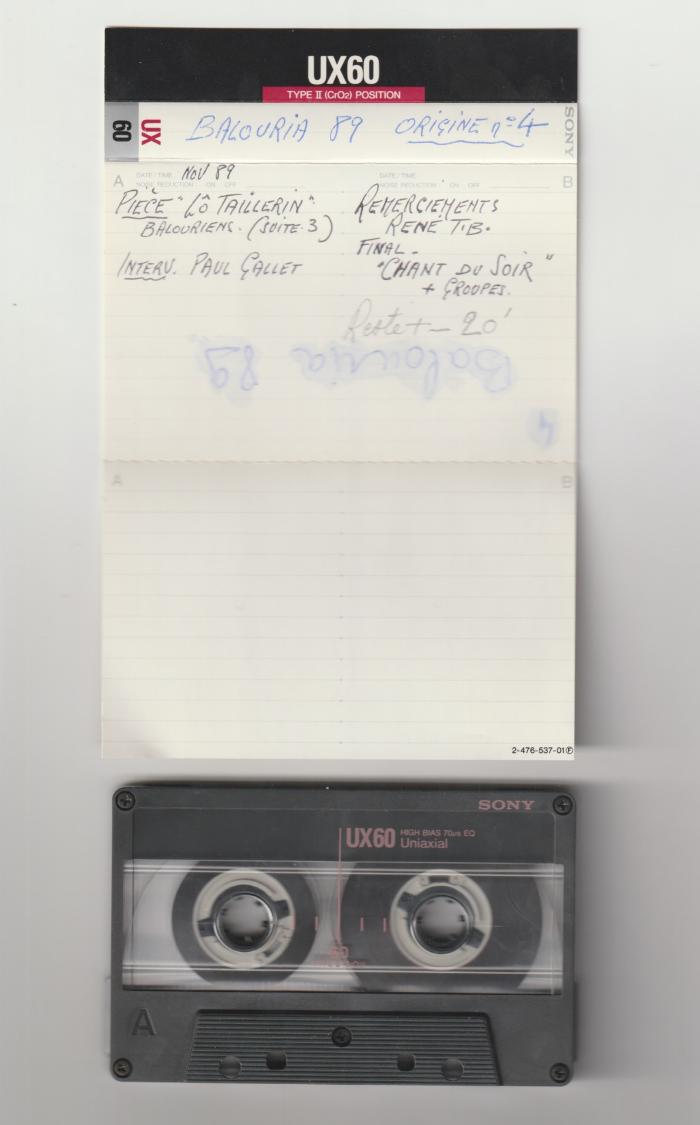 UX60
TYPE II (CrO2) POSITION
UX
60
BALOURIA 89 ORIGINE nº 4
SONY
A DATE / TIME NOV 89
NOISE REDUCTION ON OFF
PIÈCE "LÔ TAILLERIN"
BALOURIENS. (SUITE 3)
INTERV. PAUL GALLET
DATE / TIME B
NOISE REDUCTION ON OFF
REMERCIEMENTS
RENÉ T.B.
FINAL.
"CHANT DU SOIR"
+ GROUPES.
Reste +- 20'
Balouria 89
4
A B
2-476-537-01Ⓟ
SONY
UX60 HIGH BIAS 70μs EQ
Uniaxial
60
A